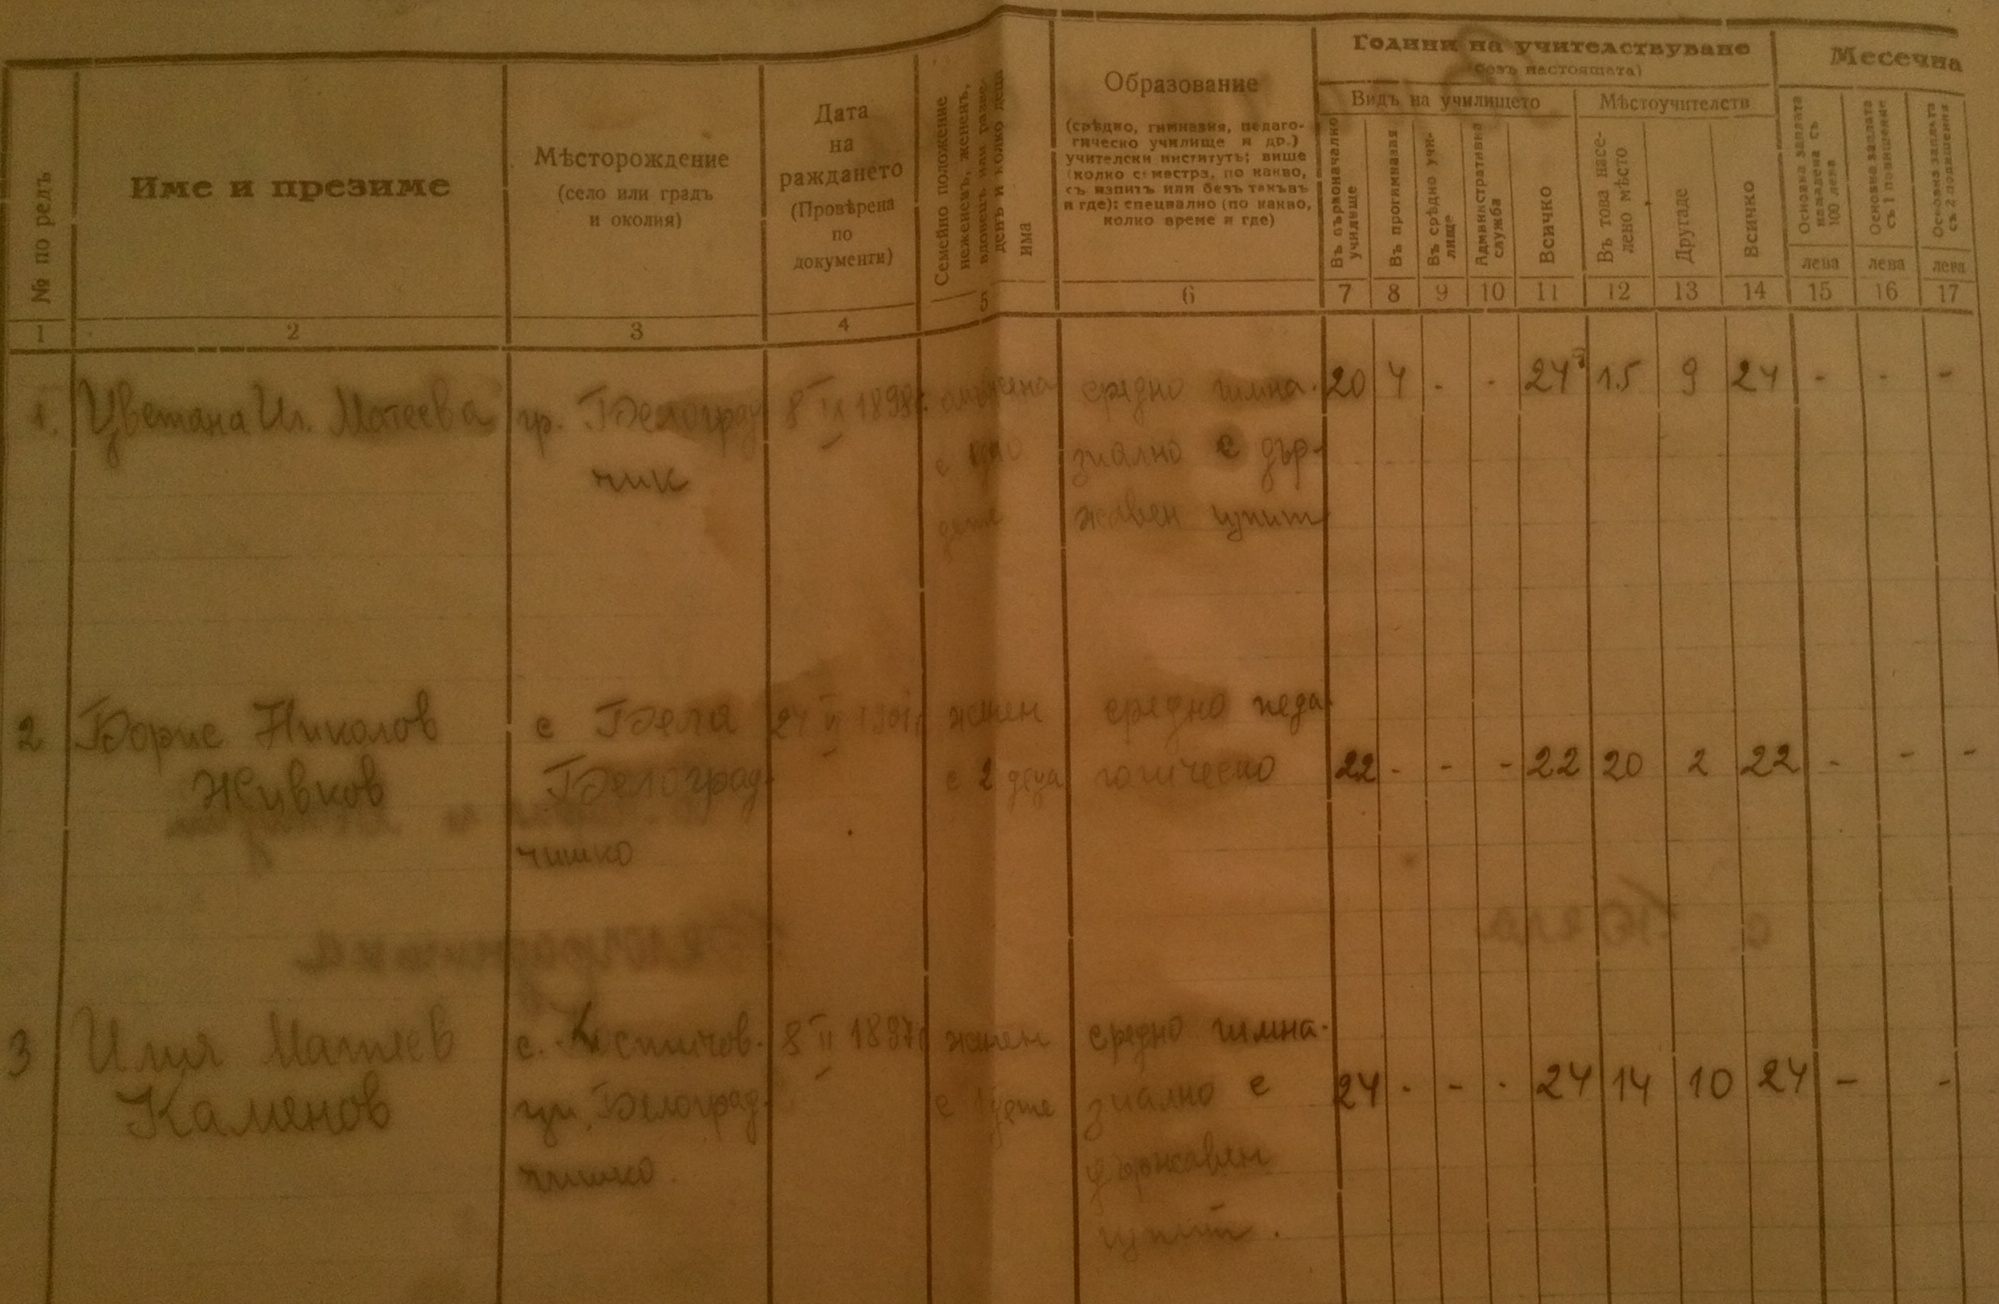 № по редъ
Име и презиме
Мѣсторождение
(село или градъ
и околия)
Дата
на
раждането
(Провѣрена
по
документи)
Семейно положение
нежененъ, жененъ,
има
Образование
(срѣдно, гимназия, педаго-
гическо училище и др.)
учителски институтъ; више
(колко семестра, по какво,
съ изпитъ или безъ такъвъ
и где); специално (по какво,
колко време и где)
Години на учителствуване
(безъ настоящата)
Видъ на училището
Въ първоначално
училище
Въ прогимназия
Въ срѣдно учи-
лище
Административна
служба
Всичко
Мѣстоучителств
Въ това насе-
лено мѣсто
Другаде
Всичко
Месечна
Основна заплата
съ
100 лева
Основна заплата
съ 1 повишение
Основна заплата
съ 2 повишения
лева лева лева
1 2 3 4 5 6 7 8 9 10 11 12 13 14 15 16 17
1. Цветана Ил. Матеева гр. Белоград 8 1898г. средно гимна- 20 4 - - 24 15 9 24 - - -
чик с едно зиално с дър-
дете жавен изпит
2 Борис Николов с Бела 24 женен средно педа
Живков Белоград- с 2 деца гогическо 22 - - - 22 20 2 22 - - -
чишко
3 Илия Матеев с. 8 II 1897г женен средно гимна-
Каменов Белоград- с 1 дете зиално с 24 - - - 24 14 10 24 - -
чишко. държавен
изпит.